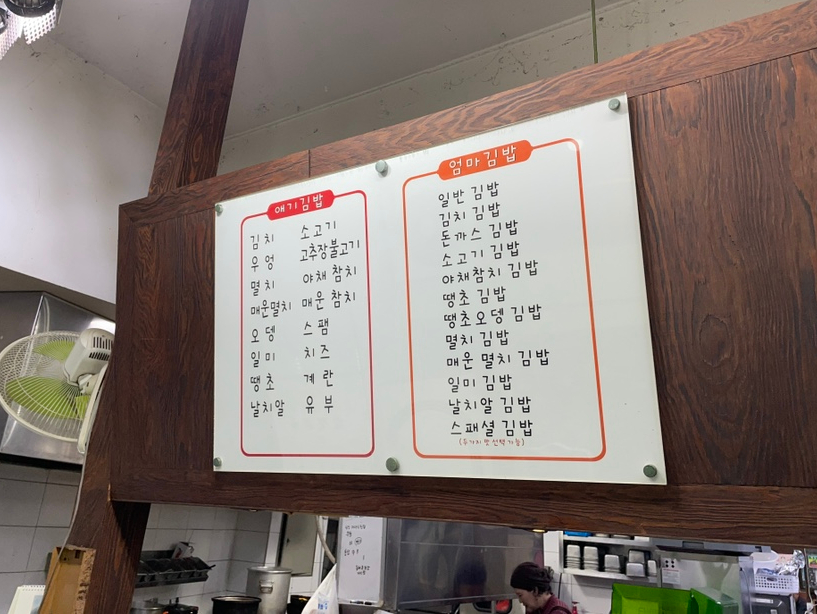 애기김밥
김치 소고기
우엉 고추장불고기
멸치 야채 참치
매운멸치 매운 참치
오뎅 스팸
일미 치즈
땡초 계란
날치알 유부
엄마김밥
일반 김밥
김치 김밥
돈까스 김밥
소고기 김밥
야채참치 김밥
땡초 김밥
땡초오뎅 김밥
멸치 김밥
매운 멸치 김밥
일미 김밥
날치알 김밥
스패셜 김밥
(두가지 맛 선택 가능)